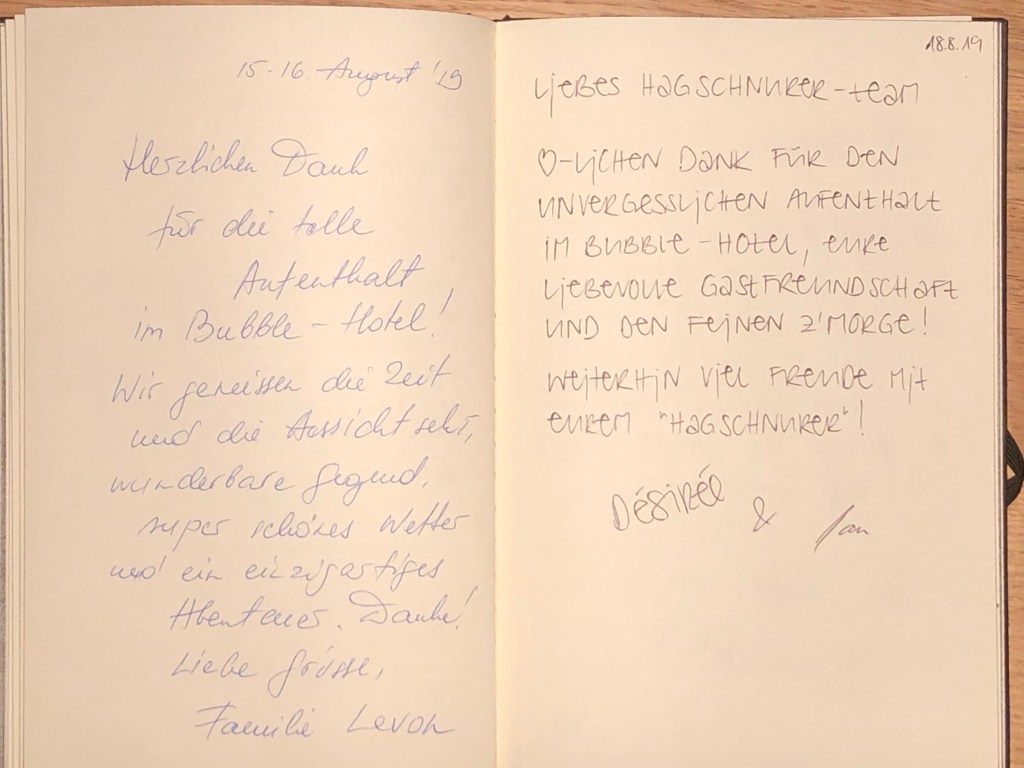 15-16. August '19
Herzlichen Dank
für die tolle
Aufenthalt
im Bubble-Hotel!
Wir geneissen die Zeit
und die Aussicht sehr,
wunderbare Gegend,
super schönes Wetter
und ein einzigartiges
Abenteuer. Danke!
Liebe Grüsse,
Familie Levon
18.8.19
Liebes Hagschnurer-Team
♡-lichen Dank für den
unvergesslichen Aufenthalt
im Bubble-Hotel, eure
liebevolle Gastfreundschaft
und den feinen Z'morge!
Weiterhin viel Freude mit
eurem "Hagschnurer"!
Désirée & Jan